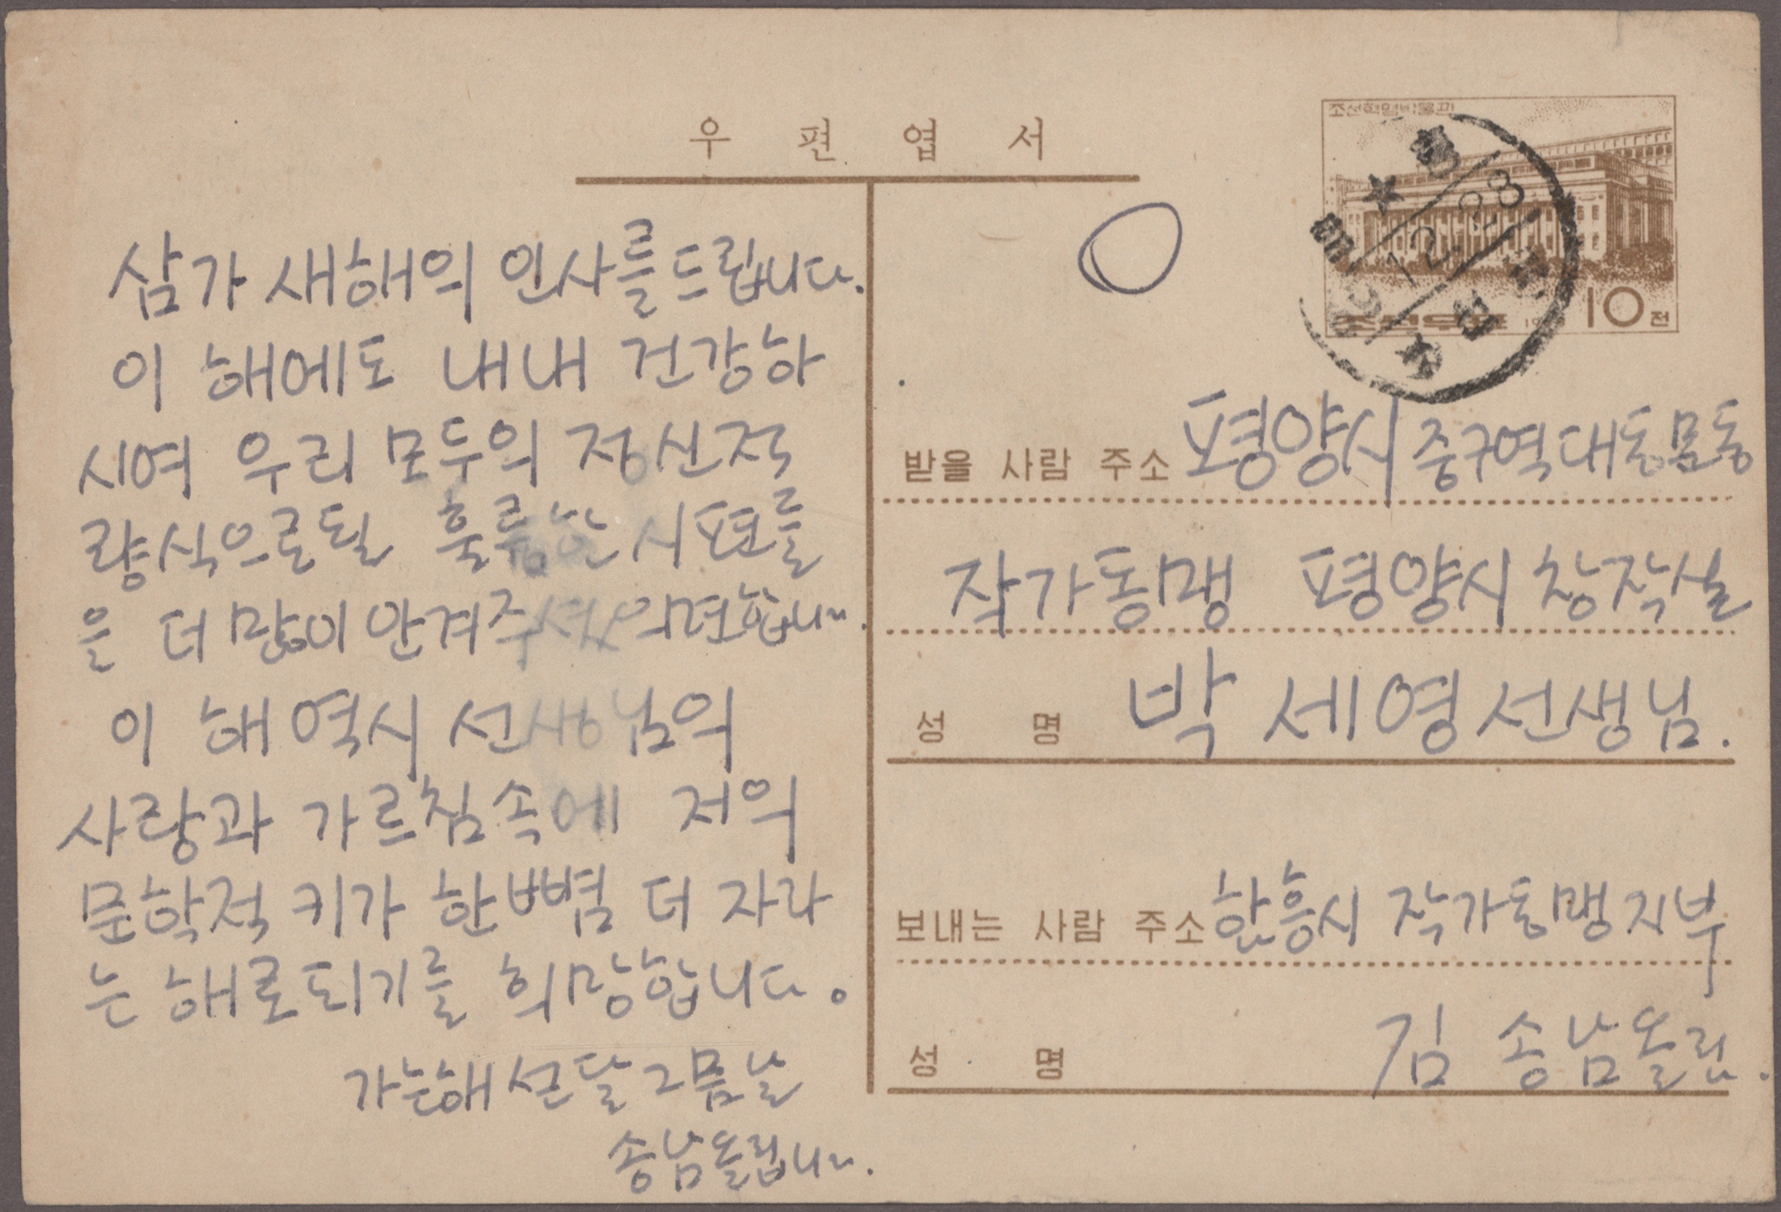 우편엽서
조선혁명박물관
12 28
조선우표
10전
삼가 새해의 인사를 드립니다.
이 해에도 내내 건강하
시여 우리 모두의 정신적
량식으로 될 훌륭한 시편들
을 더 많이 안겨주
이 해 역시 선생님의
사랑과 가르침속에 저의
문학적 키가 한뼘 더 자라
는 해로 되기를 희망합니다。
가는해 섣달 그믐날
송남 올립니다.
받을 사람 주소 평양시 중구역 대동문동
작가동맹 평양시 창작실
성 명 박 세영 선생님.
보내는 사람 주소 함흥시 작가동맹 지부
성 명 김 송남 올림.